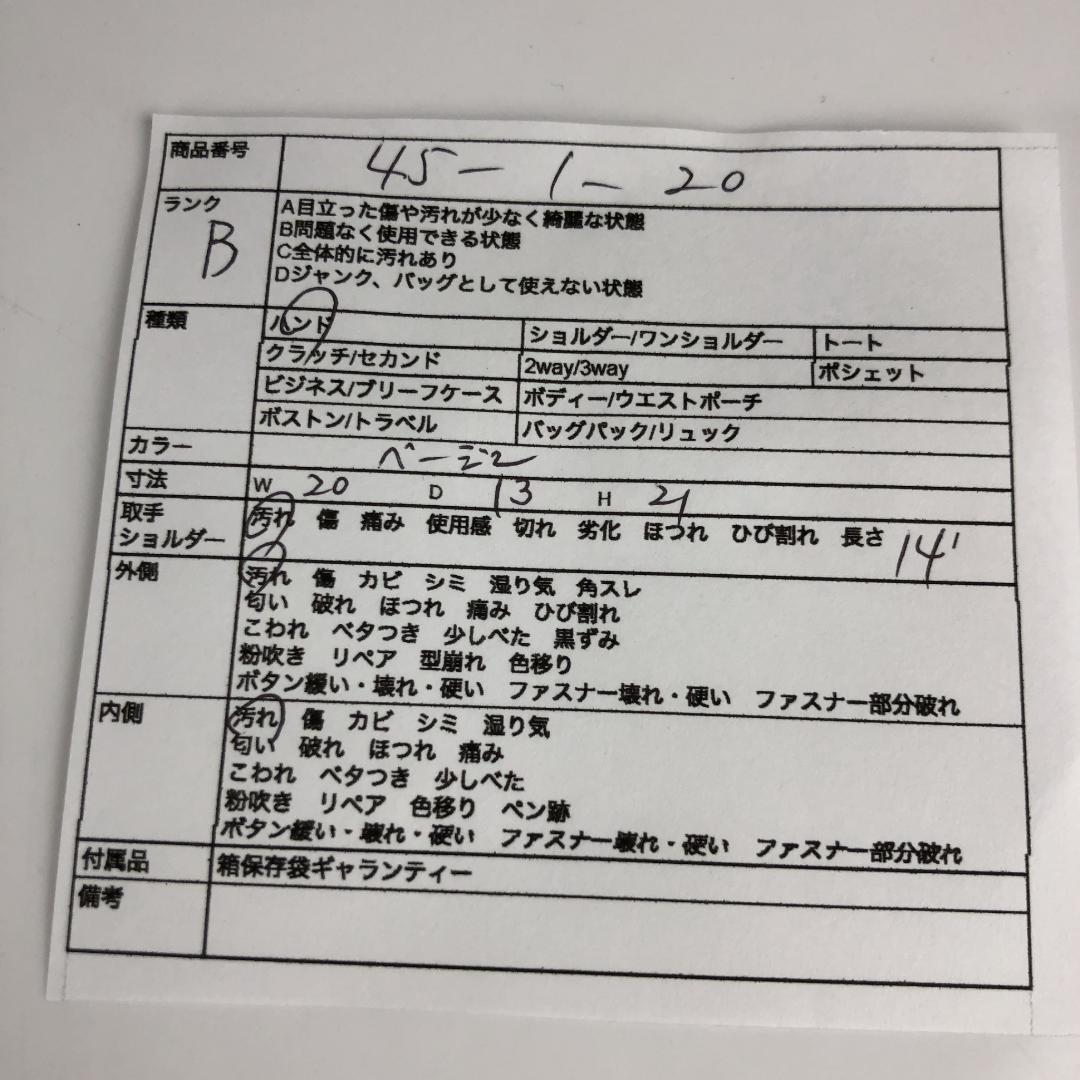 商品番号 45-1-20
ランク B
A目立った傷や汚れが少なく綺麗な状態
B問題なく使用できる状態
C全体的に汚れあり
Dジャンク、バッグとして使えない状態
種類 ハンド ショルダー/ワンショルダー トート
クラッチ/セカンド 2way/3way ポシェット
ビジネス/ブリーフケース ボディー/ウエストポーチ
ボストン/トラベル バッグパック/リュック
カラー ベージュ
寸法 W 20 D 13 H 21
取手
ショルダー
汚れ 傷 痛み 使用感 切れ 劣化 ほつれ ひび割れ 長さ 14'
外側 汚れ 傷 カビ シミ 湿り気 角スレ
匂い 破れ ほつれ 痛み ひび割れ
こわれ ベタつき 少しべた 黒ずみ
粉吹き リペア 型崩れ 色移り
ボタン緩い・壊れ・硬い ファスナー壊れ・硬い ファスナー部分破れ
内側 汚れ 傷 カビ シミ 湿り気
匂い 破れ ほつれ 痛み
こわれ ベタつき 少しべた
粉吹き リペア 色移り ペン跡
ボタン緩い・壊れ・硬い ファスナー壊れ・硬い ファスナー部分破れ
付属品 箱保存袋ギャランティー
備考